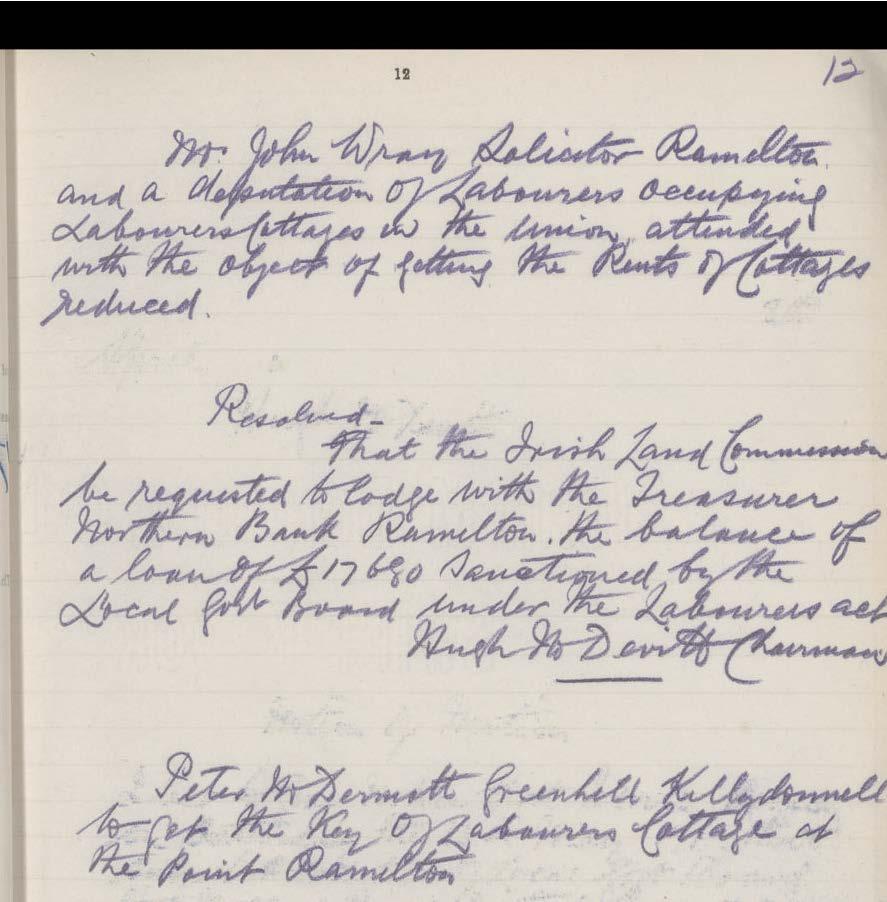 12
12
Mr. John Wray Solicitor Ramelton.
and a deputation of Labourers occupying
Labourers Cottages in the Union, attended
with the object of getting the Rents of Cottages
reduced.
Resolved-
That the Irish Land Commission
be requested to lodge with the Treasurer
Northern Bank Ramelton. the balance of
a loan of £17680 Sanctioned by the
Local Govt Board under the Labourers act
Hugh McDevitt Chairman
Peter McDermott Greenhill Killydonnell
to get the Key of Labourers Cottage at
the Point Ramelton